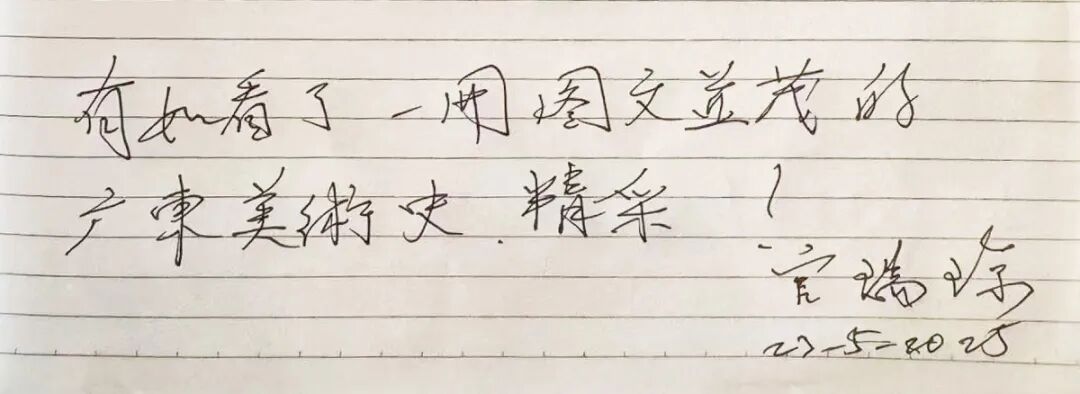 有如看了一册图文並茂的
广東美術史.精采!
官瑞
23-5-2025